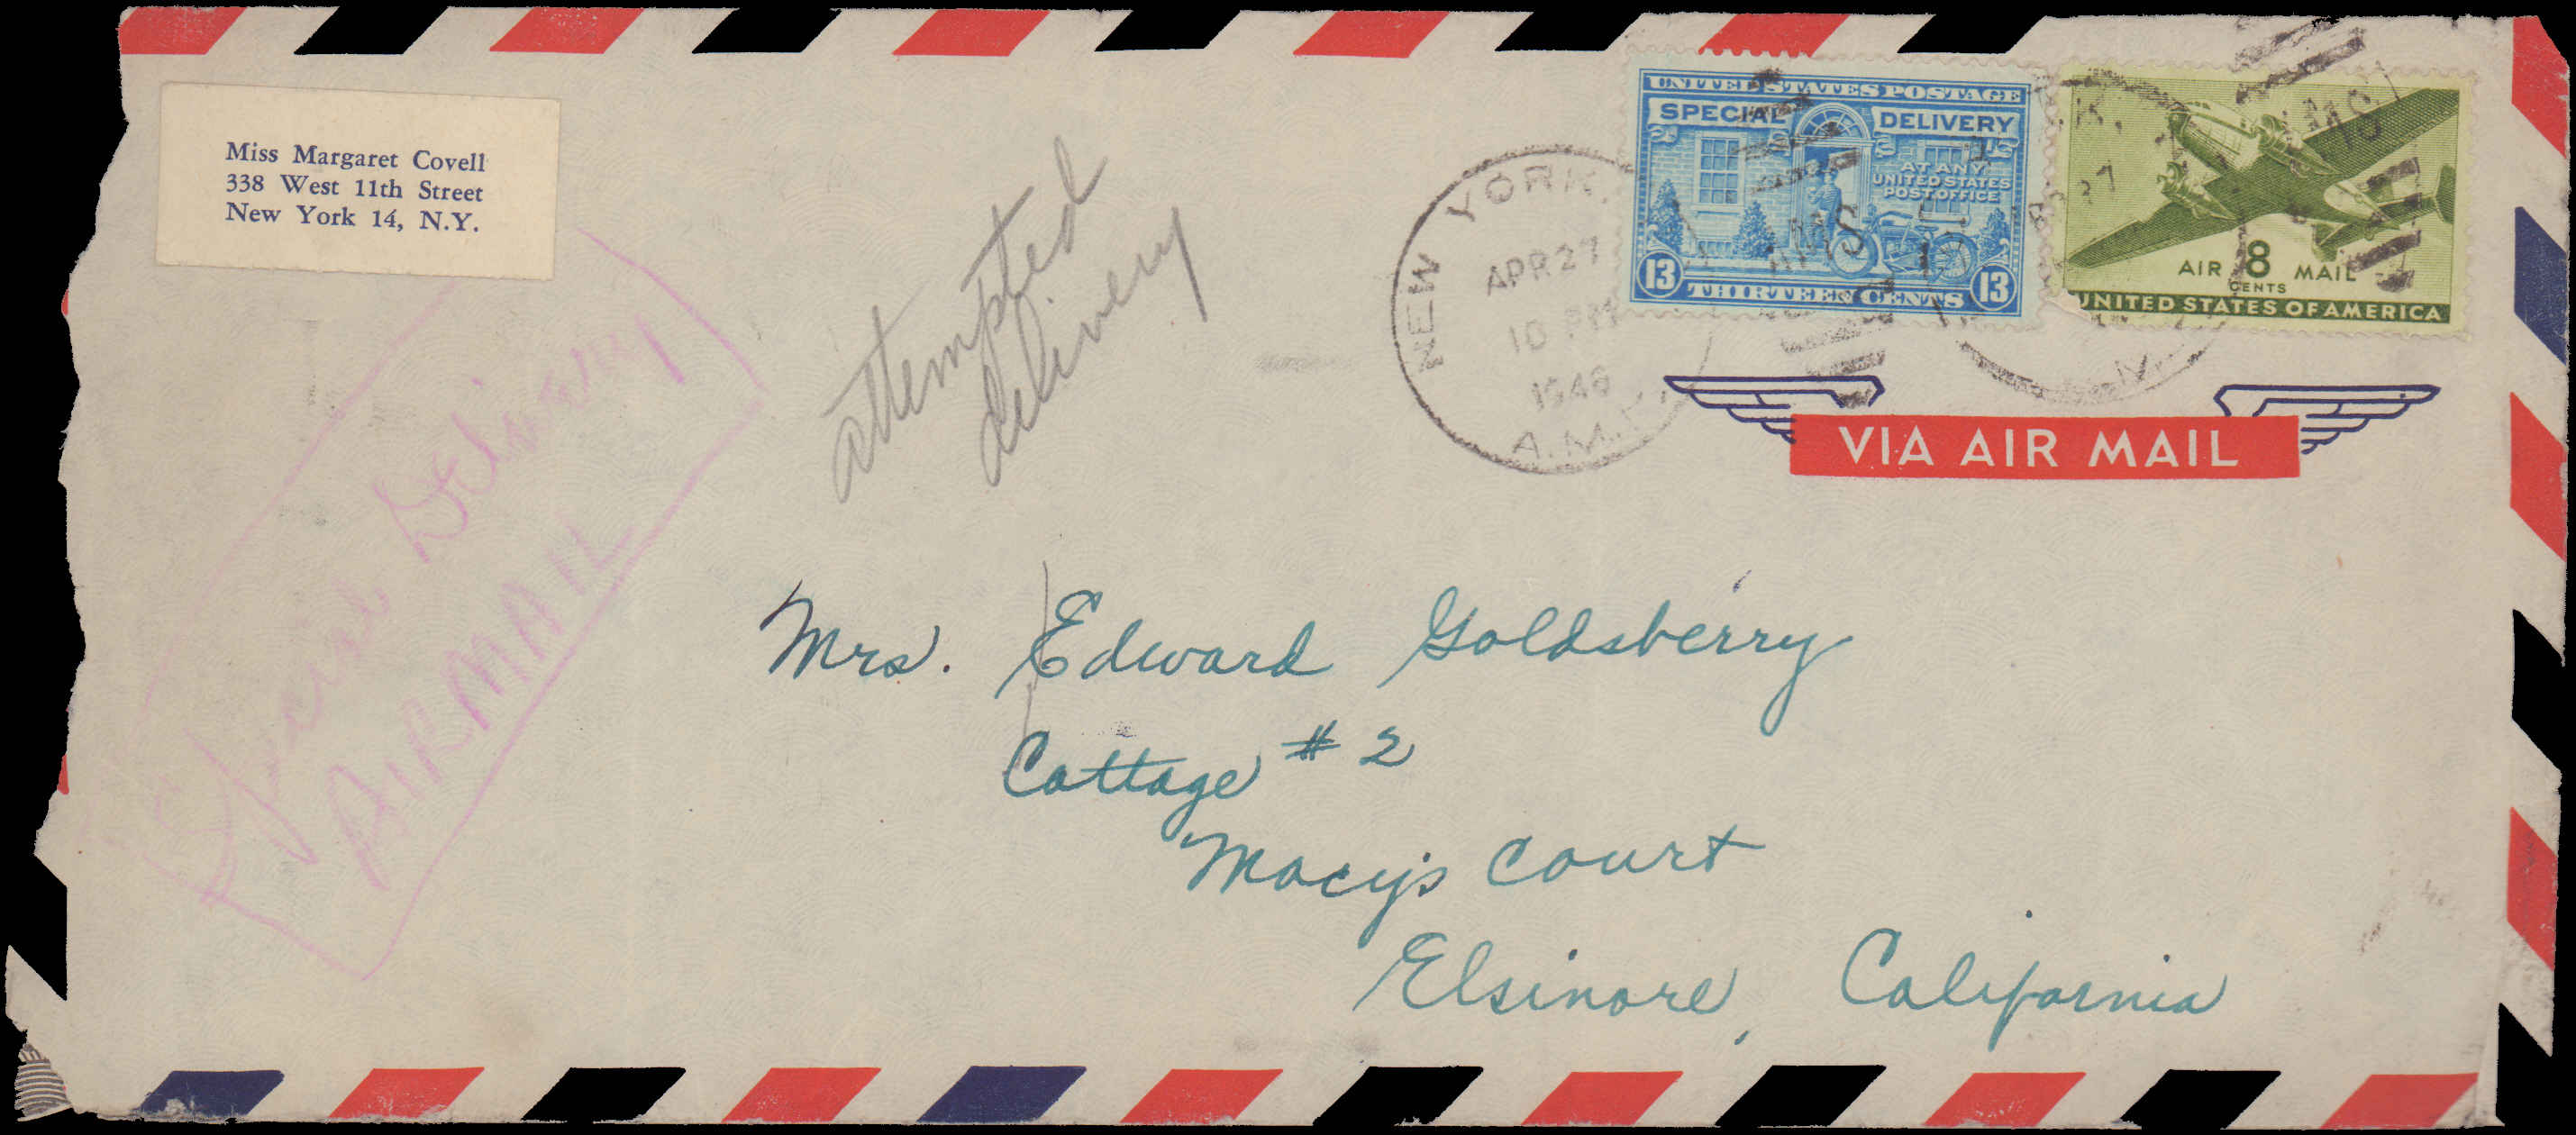 Miss Margaret Covell
338 West 11th Street
New York 14, N.Y.
Special Delivery
AIRMAIL
attempted
delivery
NEW YORK,
APR 27
10 PM
1946
A.M.F.
UNITED STATES POSTAGE
SPECIAL DELIVERY
AT ANY
UNITED STATES
POST OFFICE
13 THIRTEEN CENTS 13
AIR 8 MAIL
CENTS
UNITED STATES OF AMERICA
VIA AIR MAIL
Mrs. Edward Goldsberry
Cottage # 2
Macy's Court
Elsinore, California